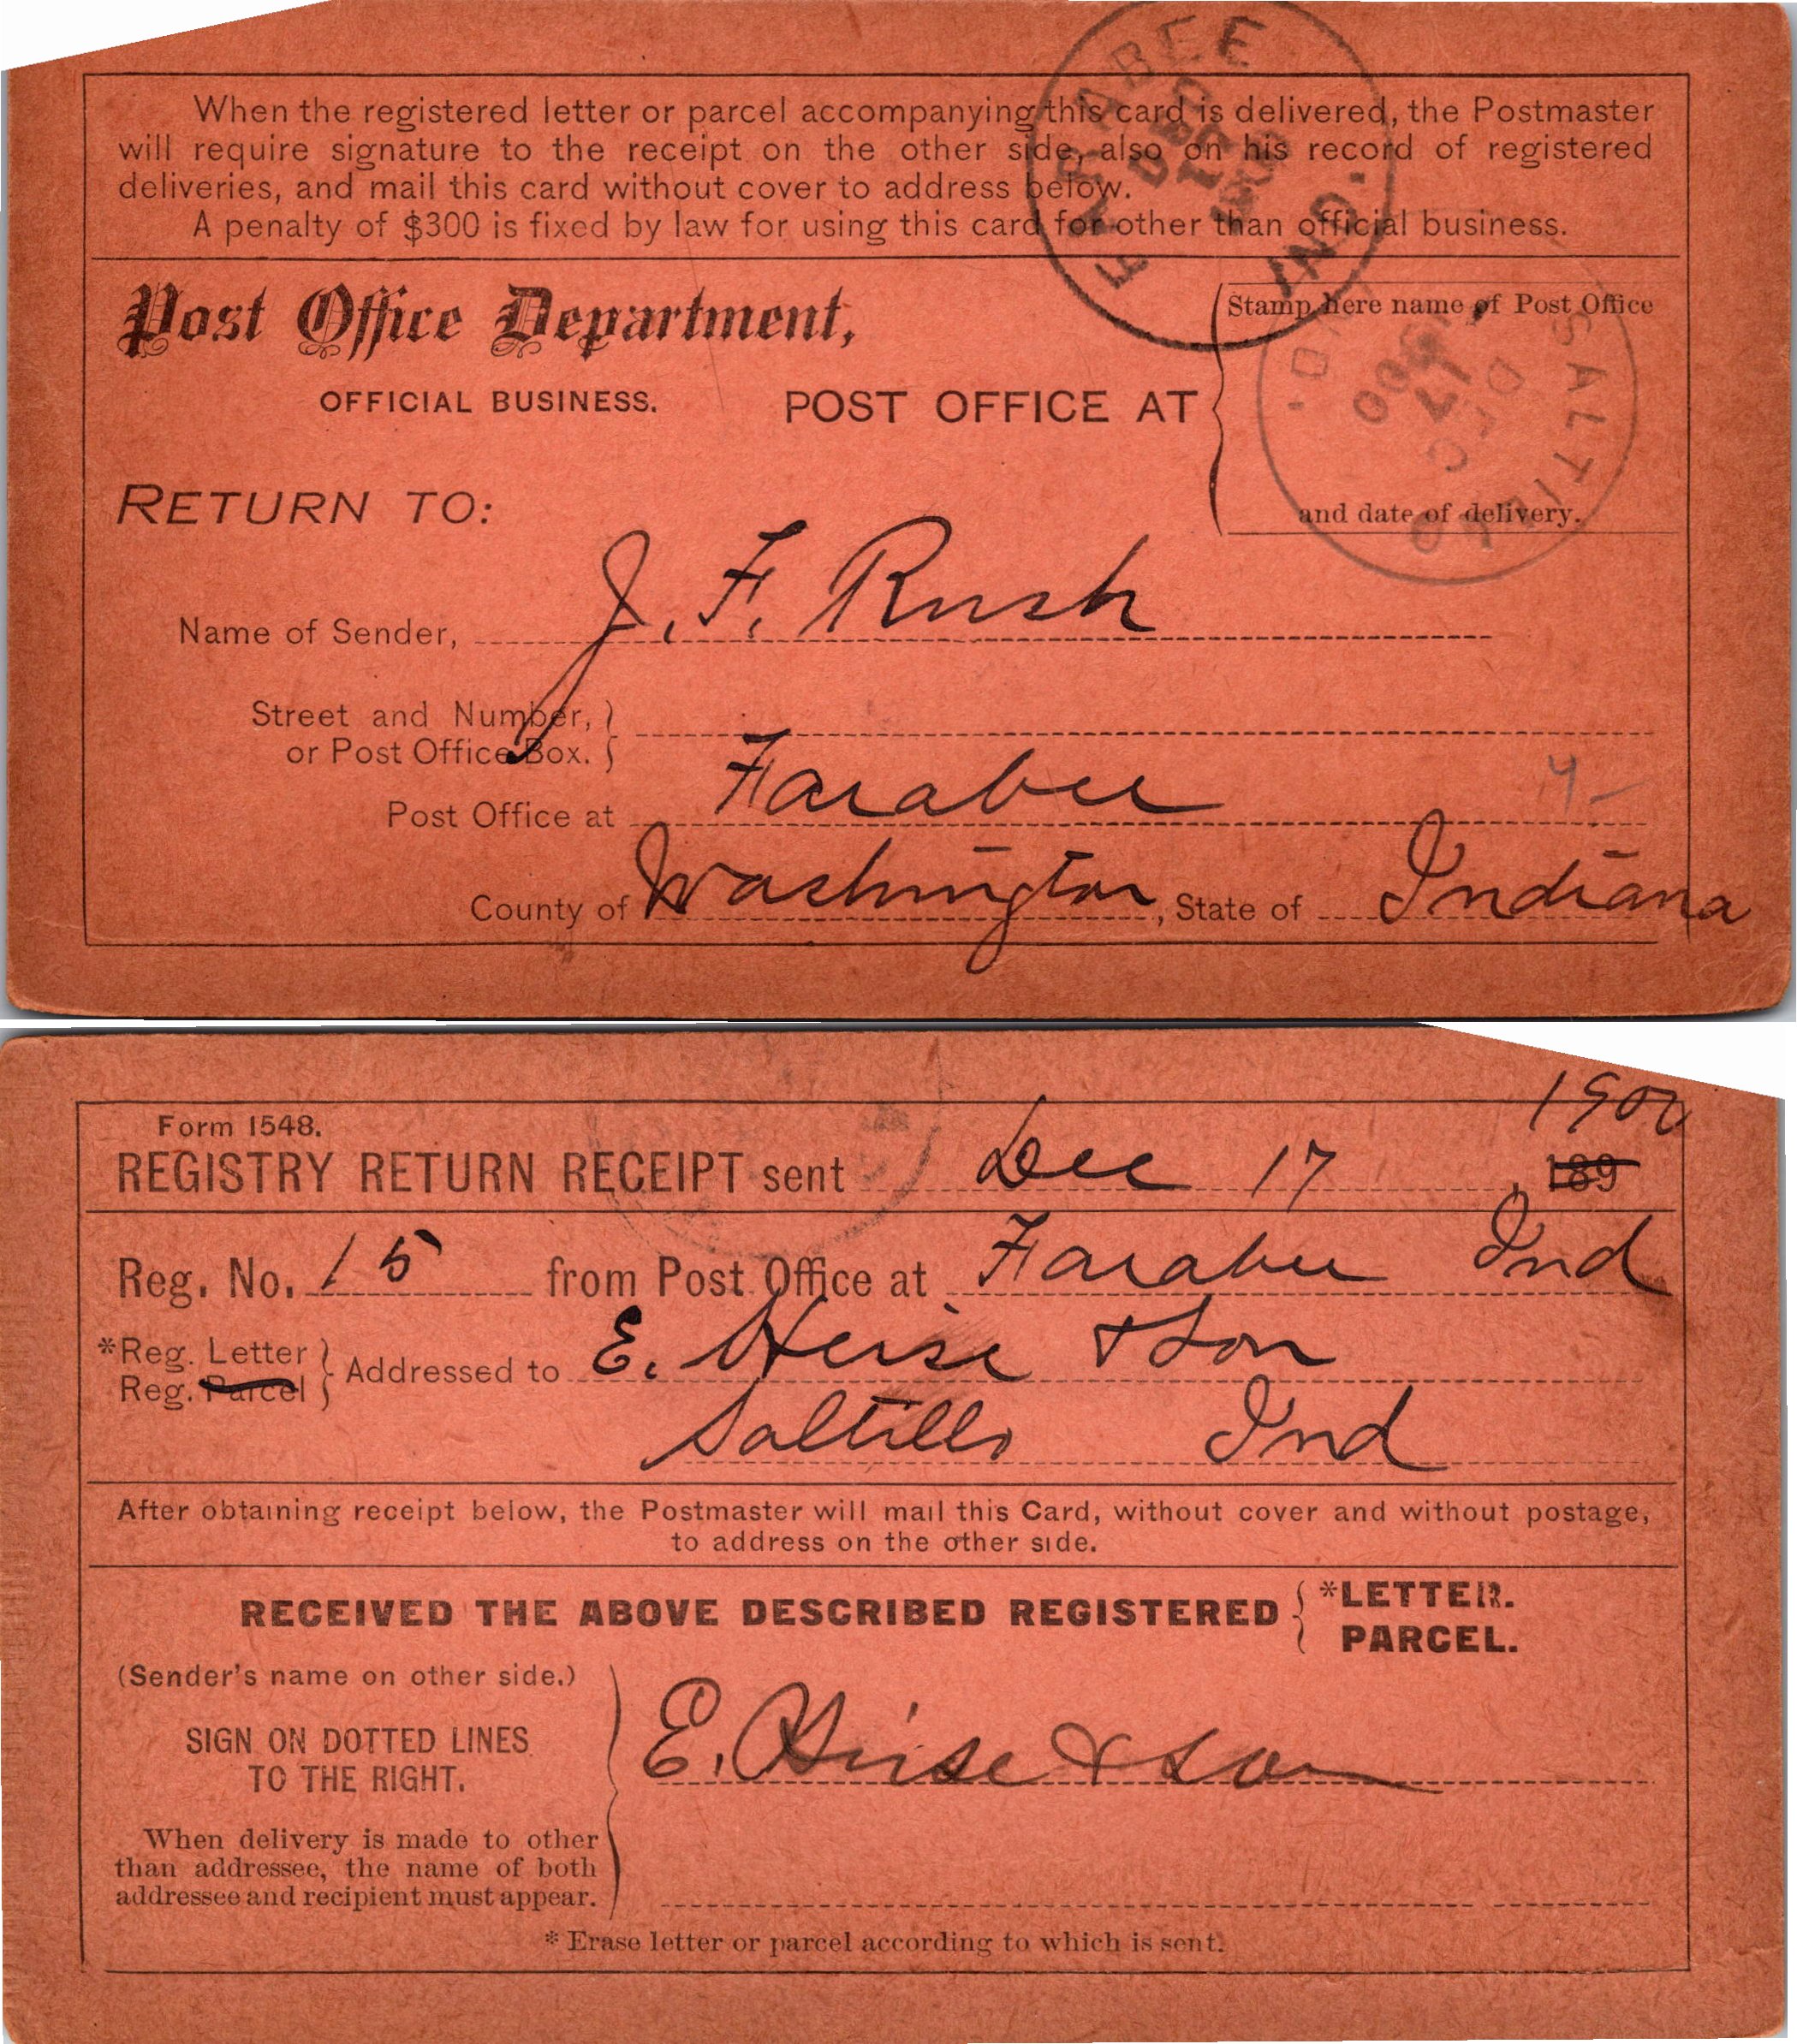 When the registered letter or parcel accompanying this card is delivered, the Postmaster
will require signature to the receipt on the other side, also on his record of registered
deliveries, and mail this card without cover to address below.
A penalty of $300 is fixed by law for using this card for other than official business.
FARABEE IND.
DEC
17
1900
Post Office Department,
OFFICIAL BUSINESS.
POST OFFICE AT
Stamp here name of Post Office
and date of delivery.
SALTILLO IND.
DEC
17
1900
RETURN TO:
Name of Sender, J. F. Rush
Street and Number,
or Post Office Box.
Post Office at Farabee
County of Washington, State of Indiana
Form 1548.
1900
REGISTRY RETURN RECEIPT sent Dec 17, 189
Reg. No. 15 from Post Office at Farabee Ind
*Reg. Letter
Reg. Parcel
Addressed to E. Heise & Son
Saltillo Ind
After obtaining receipt below, the Postmaster will mail this Card, without cover and without postage,
to address on the other side.
RECEIVED THE ABOVE DESCRIBED REGISTERED
*LETTER.
PARCEL.
(Sender's name on other side.)
SIGN ON DOTTED LINES
TO THE RIGHT.
E. Heise & Son
When delivery is made to other
than addressee, the name of both
addressee and recipient must appear.
* Erase letter or parcel according to which is sent.